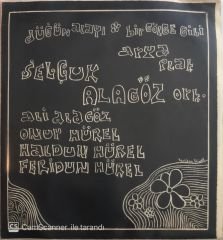 DÜĞÜN ALAYI & BİR GÖRGE GİBİ
ARYA
PLAK
SELÇUK
ALAGÖZ ORK.
ALİ ALAGÖZ
ONUR HÜREL
HALDUN HÜREL
FERİDUN HÜREL
CS CamScanner ile tarandı